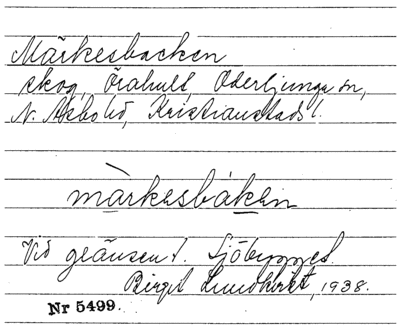 Märkesbacken
skog, Örahult, Oderljunga sn,
N. Åsbo hd, Kristianstads l.
màrkesbáken
Vid gränsen t. Sjöbygget.
Birgit Lundkvist, 1938.
Nr 5499.